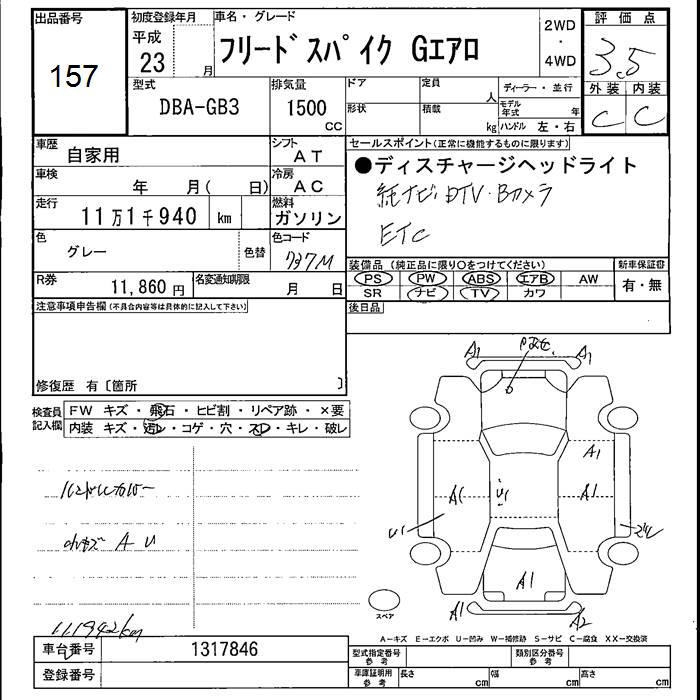 出品番号
157
初度登録年月
平成
23 月
車名・グレード
フリードスパイク Gエアロ
2WD
・
4WD
評価点
3.5
外装 内装
C C
型式
DBA-GB3
排気量
1500
cc
ドア
定員
人
形状
積載
kg
ディーラー・並行
モデル年式 年
ハンドル 左・右
車歴
自家用
シフト
AT
車検
年 月( 日)
冷房
AC
走行
11万1千940 km
燃料
ガソリン
色
グレー
色替
色コード
737M
R券
11,860 円
名変通知期限
月 日
セールスポイント(正常に機能するものに限ります)
●ディスチャージヘッドライト
純ナビ・DTV・Bカメラ
ETC
装備品 (純正品に限り○をつけてください)
PS PW ABS エアB AW
SR ナビ TV カワ
新車保証書
有・無
後日品
注意事項申告欄(不具合内容等は具体的に記入して下さい)
修復歴 有〔箇所 〕
検査員
記入欄
FW キズ・飛石・ヒビ割・リペア跡・×要
内装 キズ・汚レ・コゲ・穴・スレ・キレ・破レ
ハンドルカバー
小キズ A U
111942km
A1
A1
A1
A1
A1
U1
U1
A1
A1
A2
スペア
A-キズ E-エクボ U-凹み W-補修跡 S-サビ C-腐食 XX-交換済
車台番号
1317846
登録番号
型式指定番号
参考
類別区分番号
参考
車庫証明用
参考
長さ
cm
幅
cm
高さ
cm